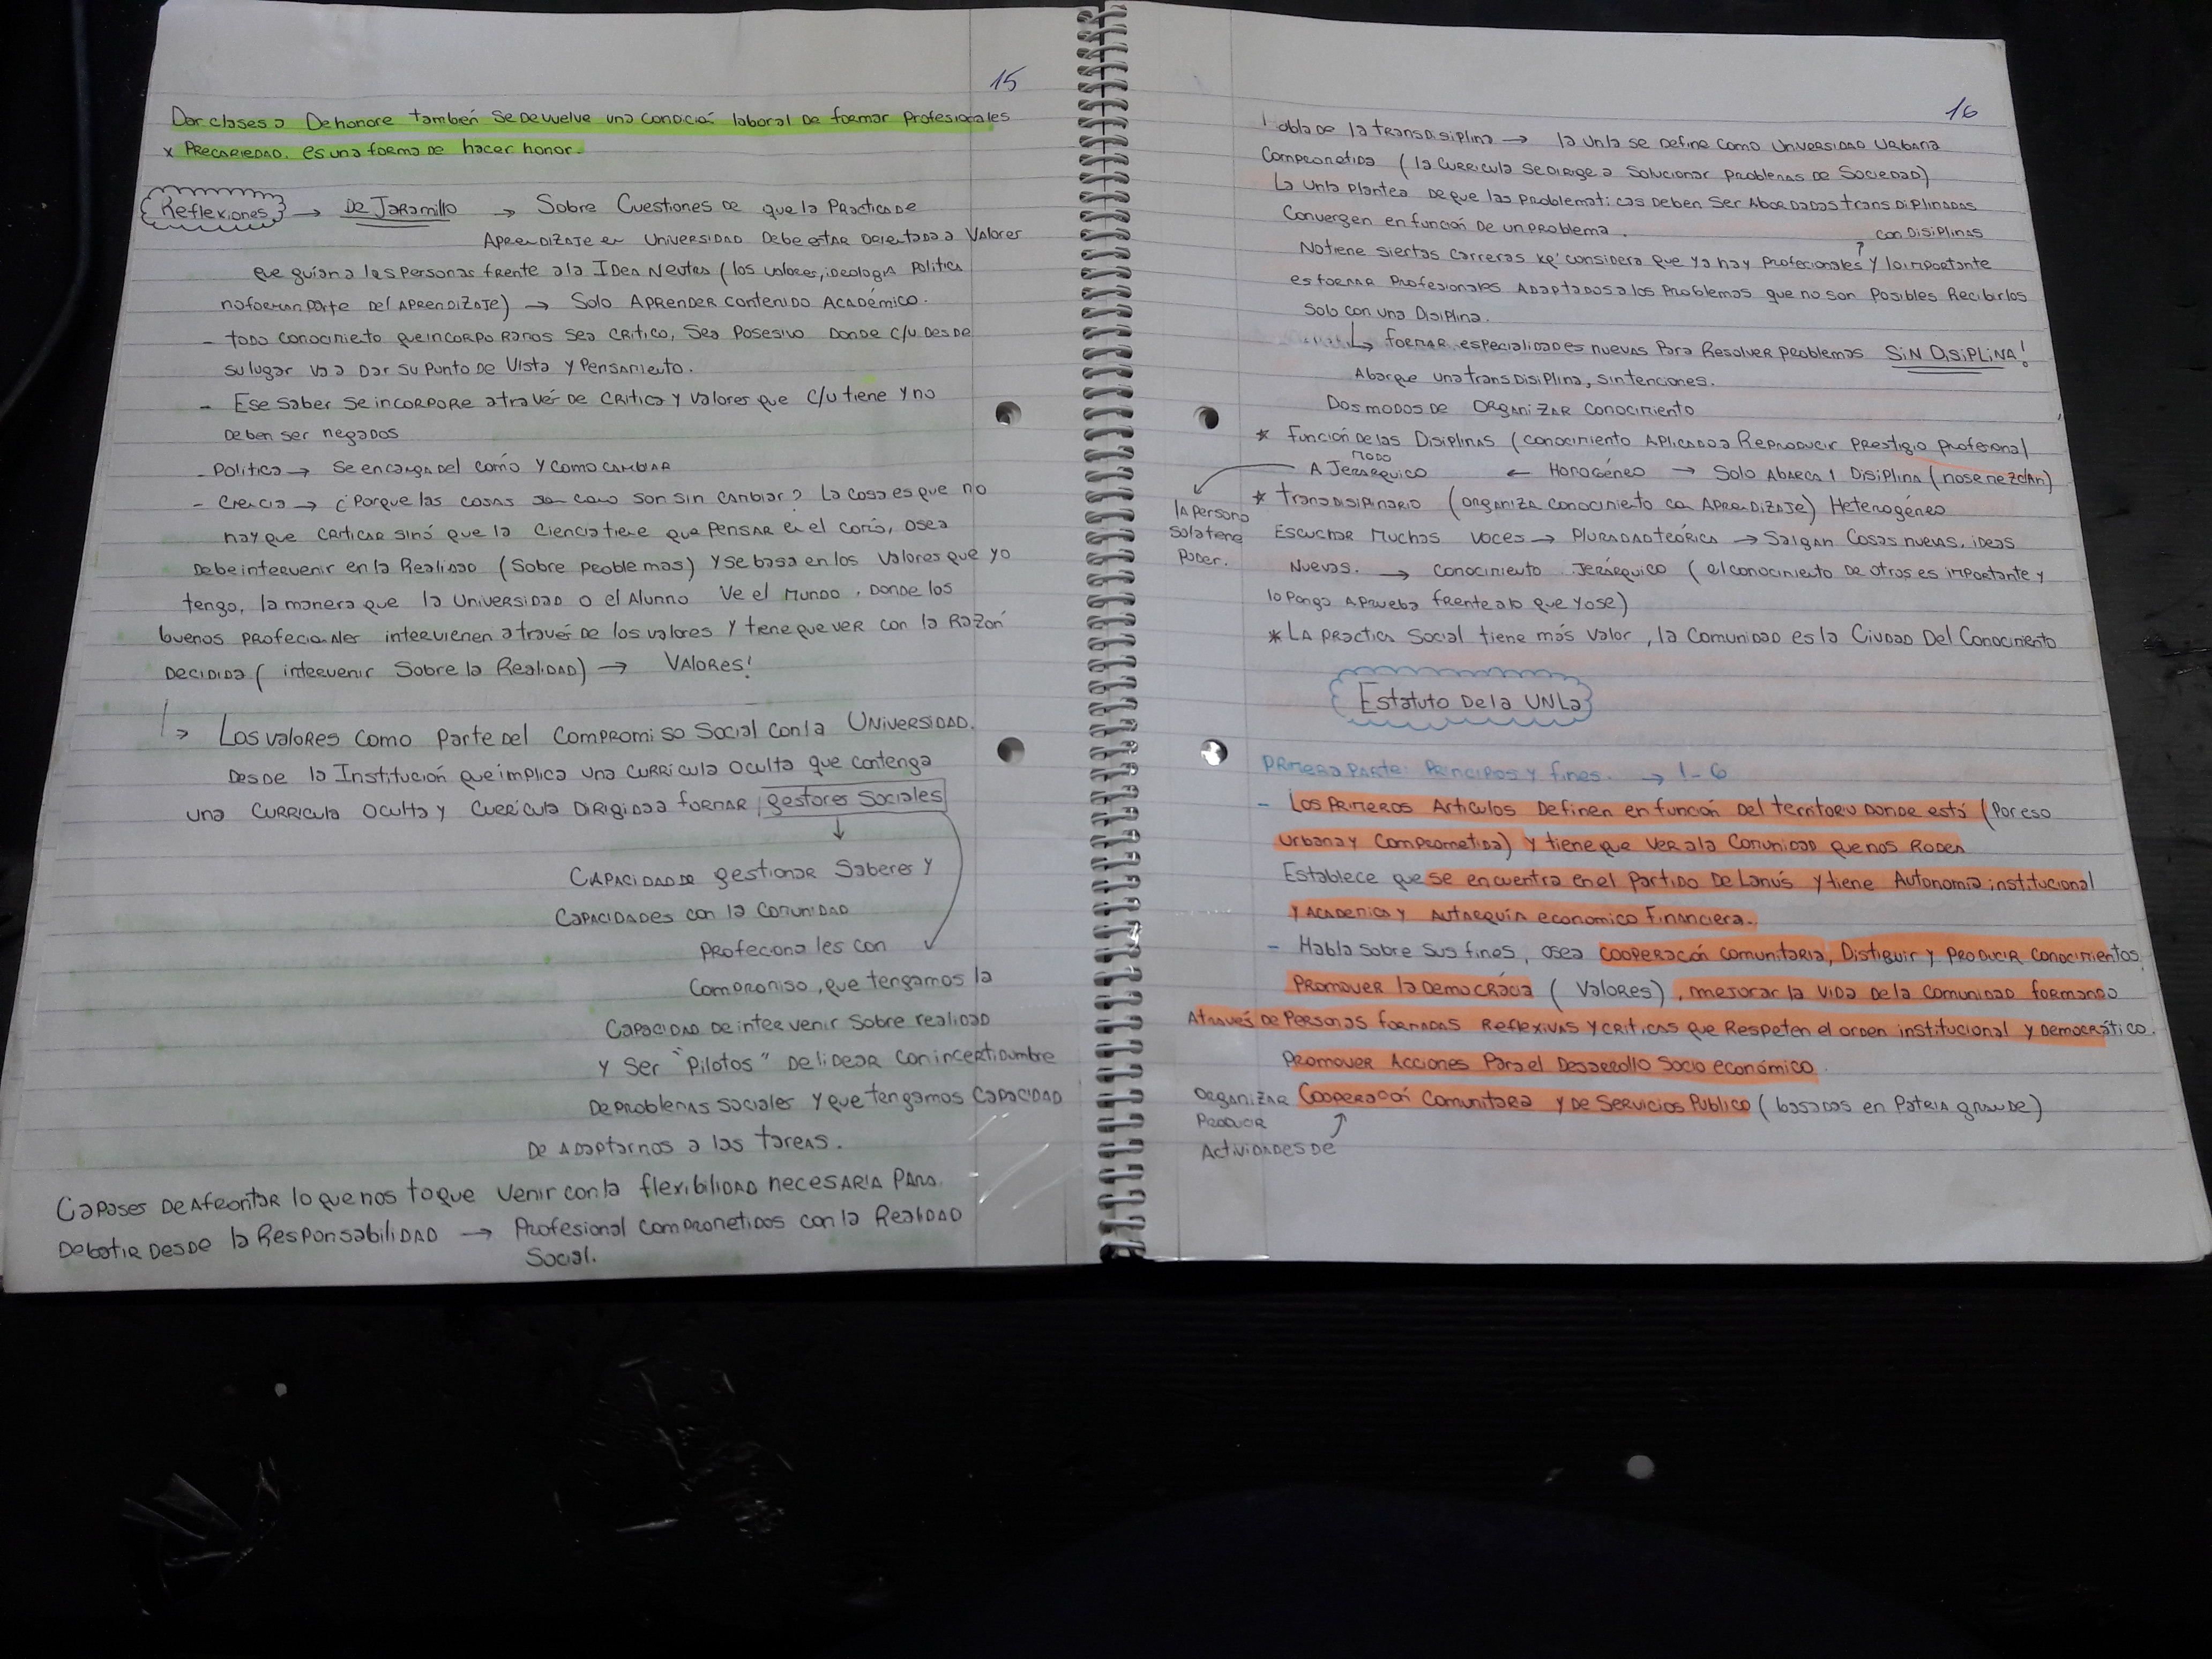 15
Dar clases a Dehonore también se devuelve una condició laboral de formar profesionales
x Precariedad. es una forma de hacer honor.
Reflexiones → De Jaramillo → Sobre Cuestiones de que la Practica de
Aprendizaje en Universidad Debe estar orientada a Valores
que guían a las personas frente a la Idea Neutra (los valores, ideologia politica
no forman parte del Aprendizaje) → Solo Aprender contenido Académico.
- todo conocimiento que incorporamos sea critico, sea posesivo donde c/u desde
su lugar va a dar su punto de vista y pensamiento.
- Ese saber se incorpore através de critica y valores que c/u tiene y no
deben ser negados
- Politica → se encarga del cómo y como cambiar
- Ciencia → ¿Porque las cosas son como son sin cambiar? La cosa es que no
hay que criticar sinó que la ciencia tiene que pensar en el comó, osea
debe intervenir en la Realidad (Sobre problemas) y se basa en los valores que yo
tengo, la manera que la Universidad o el Alunno ve el mundo. Donde los
buenos profecionales intervienen através de los valores y tiene que ver con la Razón
Decidida (intervenir Sobre la Realidad) → VALORES!
↳ Los valores como parte del compromiso Social con la Universidad.
Desde la Institución que implica una curricula oculta que contenga
una curricula oculta y curricula dirigida a formar gestores Sociales
↓
Capacidad de gestionar Saberes y
capacidades con la comunidad
profecionales con
compromiso, que tengamos la
capacidad de intervenir sobre realidad
y ser "pilotos" de lidear con incertidumbre
de problemas sociales y que tengamos capacidad
de adaptarnos a las tareas.
Capases de afrontar lo que nos toque venir con la flexibilidad necesaria para
Debatir desde la Responsabilidad → Profesional comprometidos con la Realidad
Social.
16
Habla de la transdisiplina → la Unla se define como Universidad Urbana
Comprometida (la curricula se dirige a solucionar problemas de Sociedad)
La Unla plantea de que las problematicas deben ser abordadas transdiplinadas
Convergen en función de un problema.
con Disiplinas
No tiene siertas carreras xq' considera que ya hay profecionales y lo importante
es formar profesionales adaptados a los problemas que no son posibles recibirlos
Solo con una Disiplina.
↳ formar especialidades nuevas para resolver problemas SIN DISIPLINA!
Abarque una transdisiplina, sin tenciones.
Dos modos de organizar conocimiento
* función de las Disiplinas (conocimiento aplicado a reproducir prestigio profesional
modo
A Jerárquico ← Homogéneo → Solo Abarca 1 Disiplina (no se mezclan)
la persona
sola tiene
Poder.
* transdisiplinario (organiza conocimiento con Aprendizaje) Heterogéneo
Escuchar muchas voces → pluradad teórica → Salgan cosas nuevas, ideas
Nuevas. → conocimiento Jerárquico (el conocimiento de otros es importante y
lo pongo a prueba frente a lo que yo se)
* La practica Social tiene más valor, la comunidad es la Ciudad Del Conocimiento
Estatuto De la UNLa
Primera parte: Principos y fines. → 1-6
- Los primeros Articulos definen en función del territoro donde está (Por eso
urbana y comprometida) y tiene que ver a la comunidad que nos rodea
Establece que se encuentra en el partido De Lanús y tiene Autonomía institucional
y Academica y Autarquía economico financiera.
- Habla sobre sus fines, osea cooperacón comunitaria, Distiguir y producir conocimientos,
Promover la Democrácia (Valores), mejorar la vida de la comunidad formando
Através de personas formadas reflexivas y criticas que respeten el orden institucional y democrático.
Promover Acciones para el Desarrollo Socio económico.
Organizar Cooperacón Comunitara y de Servicios Publico (basados en Patria grande)
Producir
Actividades de